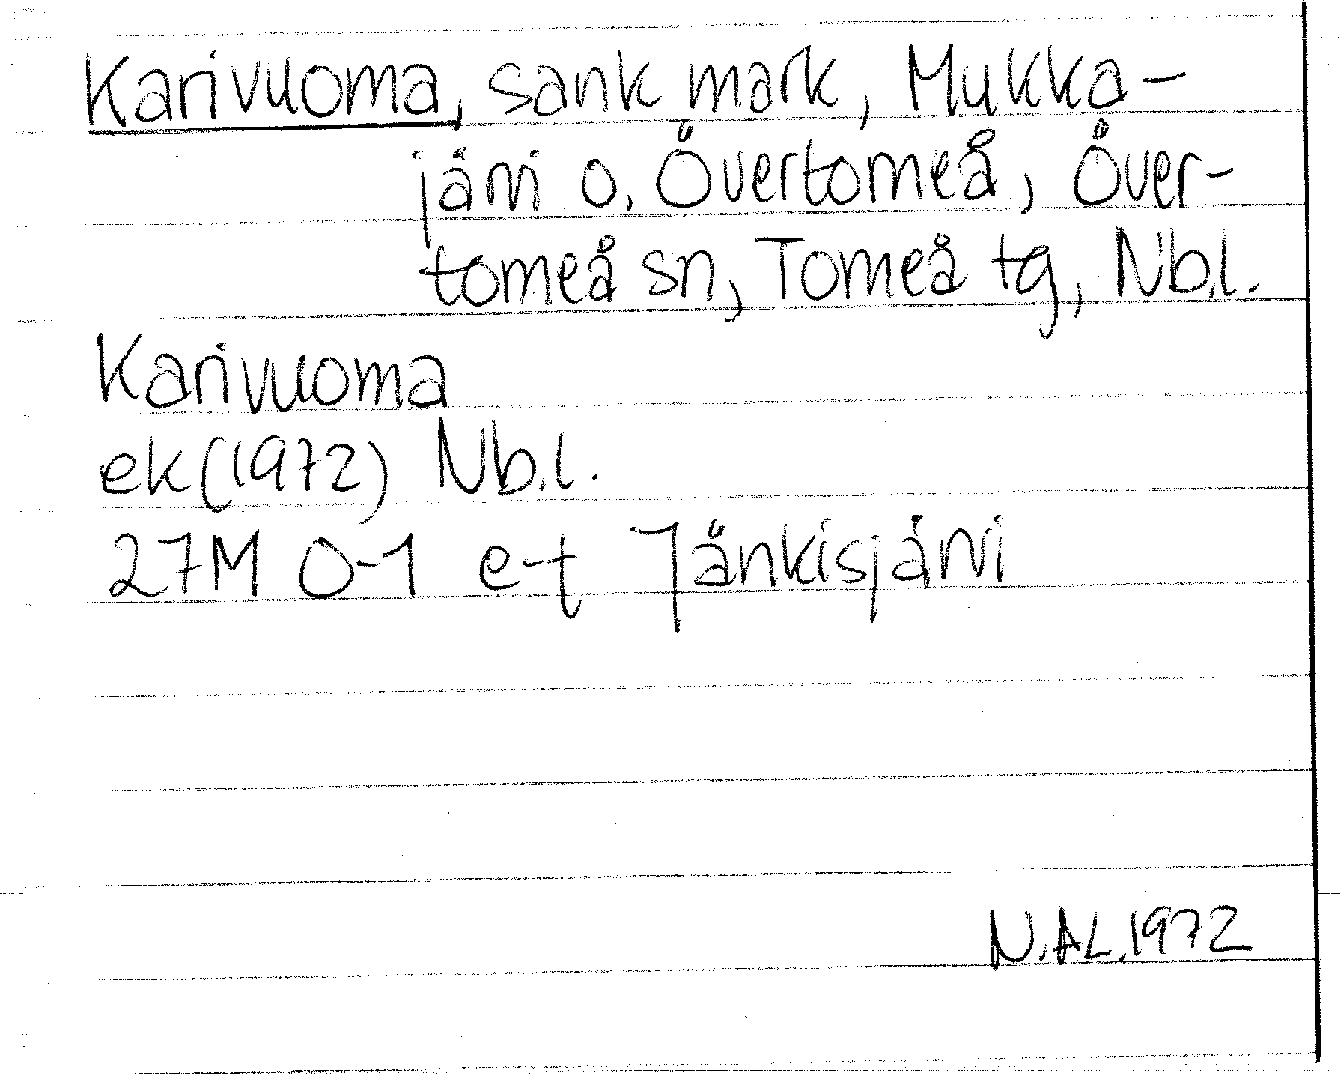 Karivuoma, sank mark, Mukka-
järvi o. Övertorneå, Över-
torneå sn, Torneå tg, Nb.l.
Karivuoma
ek (1972) Nb.l.
27M 0-1 e-f Jänkisjärvi
N.ÅL.1972